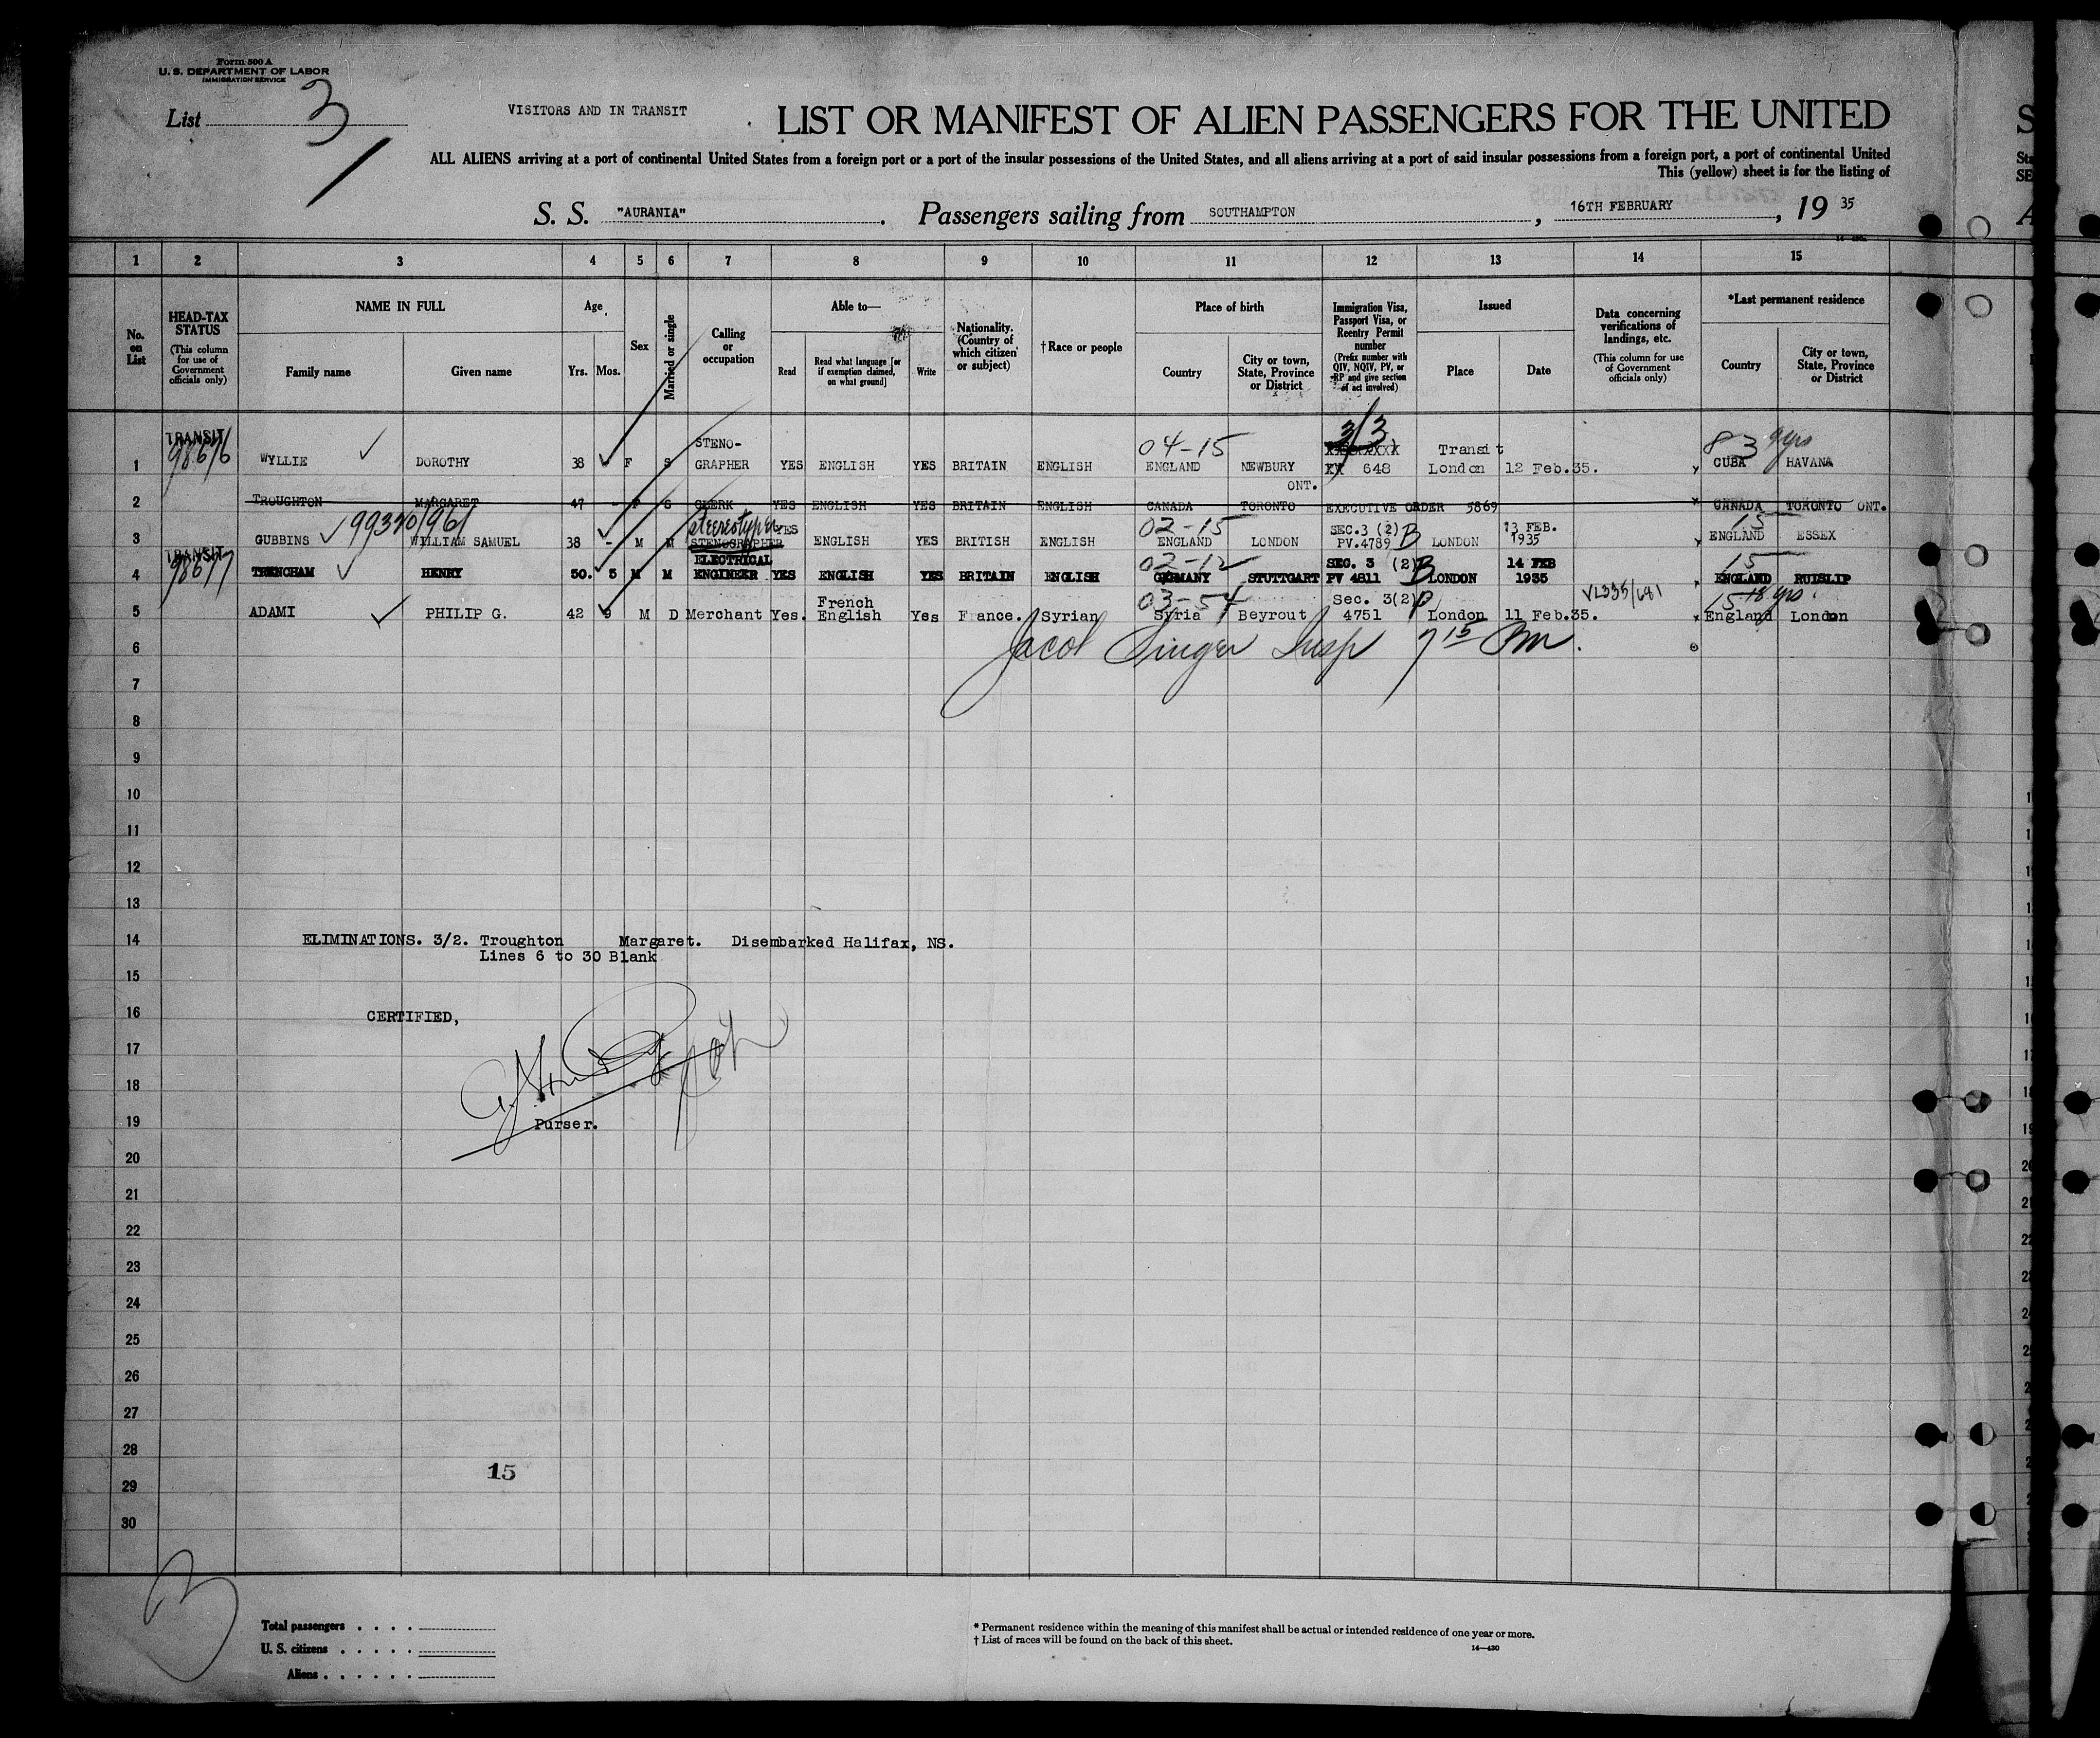 Form 500 A
U. S. DEPARTMENT OF LABOR
IMMIGRATION SERVICE
List 3
VISITORS AND IN TRANSIT
LIST OR MANIFEST OF ALIEN PASSENGERS FOR THE UNITED
ALL ALIENS arriving at a port of continental United States from a foreign port or a port of the insular possessions of the United States, and all aliens arriving at a port of said insular possessions from a foreign port, a port of continental United
This (yellow) sheet is for the listing of
S. S. "AURANIA". Passengers sailing from SOUTHAMPTON, 16TH FEBRUARY, 19 35
1 2 3 4 5 6 7 8 9 10 11 12 13 14 15
No. on List
HEAD-TAX STATUS (This column for use of Government officials only)
NAME IN FULL
Family name Given name
Age
Yrs. Mos.
Sex
Married or single
Calling or occupation
Able to—
Read Read what language [or if exemption claimed, on what ground] Write
Nationality. (Country of which citizen or subject)
†Race or people
Place of birth
Country City or town, State, Province or District
Immigration Visa, Passport Visa, or Reentry Permit number (Prefix number with QIV, NQIV, PV, or RP and give section of act involved)
Issued
Place Date
Data concerning verifications of landings, etc. (This column for use of Government officials only)
*Last permanent residence
Country City or town, State, Province or District
TRANSIT STENO- 04-15 3/3 Transit 83 9yrs
1 98676 WYLLIE DOROTHY 38 F S GRAPHER YES ENGLISH YES BRITAIN ENGLISH ENGLAND NEWBURY 648 London 12 Feb.35. CUBA HAVANA
ONT.
2 TROUGHTON MARGARET 47 - F S CLERK YES ENGLISH YES BRITAIN ENGLISH CANADA TORONTO EXECUTIVE ORDER 5869 CANADA TORONTO ONT.
99320/961 Stereotyper 02-15 SEC.3 (2) B 13 FEB. 15
3 GUBBINS WILLIAM SAMUEL 38 - M M STENOGRAPHER YES ENGLISH YES BRITISH ENGLISH ENGLAND LONDON PV.4789 LONDON 1935 ENGLAND ESSEX
TRANSIT ELECTRICAL 02-12 SEC. 3 (2) B 14 FEB 15
4 98677 TRENCHAM HENRY 50. 5 M M ENGINEER YES ENGLISH YES BRITAIN ENGLISH GERMANY STUTTGART PV 4811 LONDON 1935 ENGLAND RUISLIP
French 03-54 Sec. 3(2) B VL335/681 15 18 yrs.
5 ADAMI PHILIP G. 42 9 M D Merchant Yes. English Yes France. Syrian Syria Beyrout 4751 London 11 Feb.35. England London
6 Jacob Singer Insp 7 15 Pm.
7
8
9
10
11
12
13
14 ELIMINATIONS. 3/2. Troughton Margaret. Disembarked Halifax, NS.
Lines 6 to 30 Blank
15
16 CERTIFIED,
17
18
19 Purser.
20
21
22
23
24
25
26
27
28
15
29
30
3
Total passengers . . . .
U. S. citizens . . . . .
Aliens . . . . . .
* Permanent residence within the meaning of this manifest shall be actual or intended residence of one year or more.
† List of races will be found on the back of this sheet.
14—430